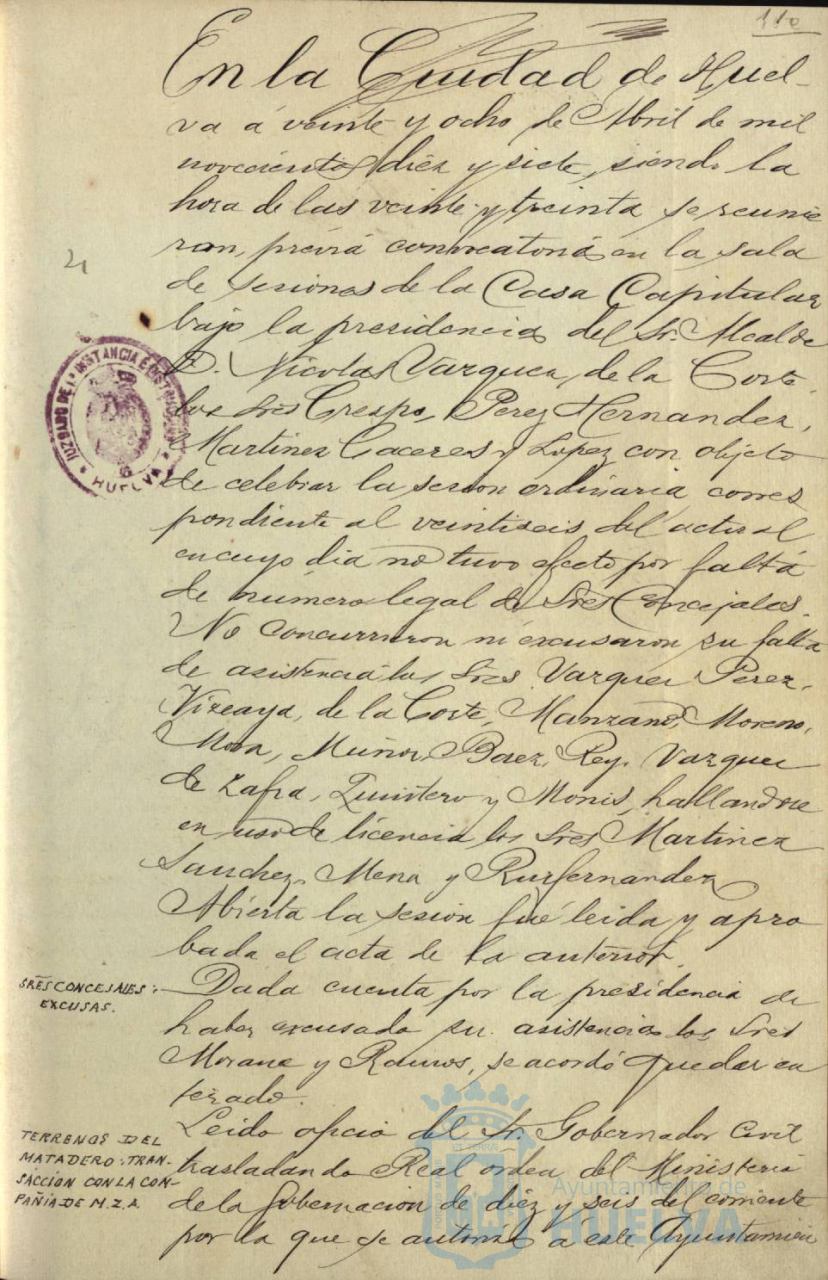 110
En la Ciudad de Huel-
va á veinte y ocho de Abril de mil
novecientos diez y siete, siendo la
hora de las veinte y treinta se reunie
ron, prévia convocatoria en la sala
de sesiones de la Casa Capitular
bajo la presidencia del Sr. Alcalde
D. Nicolas Vazquez, de la Corte
los Srēs Crespo, Perez Hernandez,
Martinez Caceres y Lopez con objeto
de celebrar la sesion ordinaria corres
pondiente al veintiseis del actual
en cuyo dia no tuvo efecto por falta
de número legal de Srēs Concejales.
No concurrieron ni excusaron su falta
de asistencia los Srēs Vazquez Perez,
Vizcaya, de la Corte, Manzano, Moreno,
Mora, Muñoz, Baez, Rey, Vazquez
de Zafra, Quintero y Monis, hallandose
en uso de licencia los Srēs Martinez
Sanchez, Mena y Ruifernandez
Abierta la sesion fué leida y apro
bada el acta de la anterior.
SRĒS CONCEJALES:
EXCUSAS.
Dada cuenta por la presidencia de
haber excusado su asistencia los Srēs
Morane y Ramos, se acordó quedar en
terado.
TERRENOS DEL
MATADERO: TRAN-
SACCIÓN CON LA COM-
PAÑIA DE M.Z.A.
Leido oficio del Sr. Gobernador Civil
trasladando Real orden del Ministerio
de la Gobernacion de diez y seis del corriente
por la que se autoriza á este Ayuntamien
JUZGADO DE 1ª INSTANCIA E INSTRUCCION
HUELVA
Ayuntamiento de
HUELVA